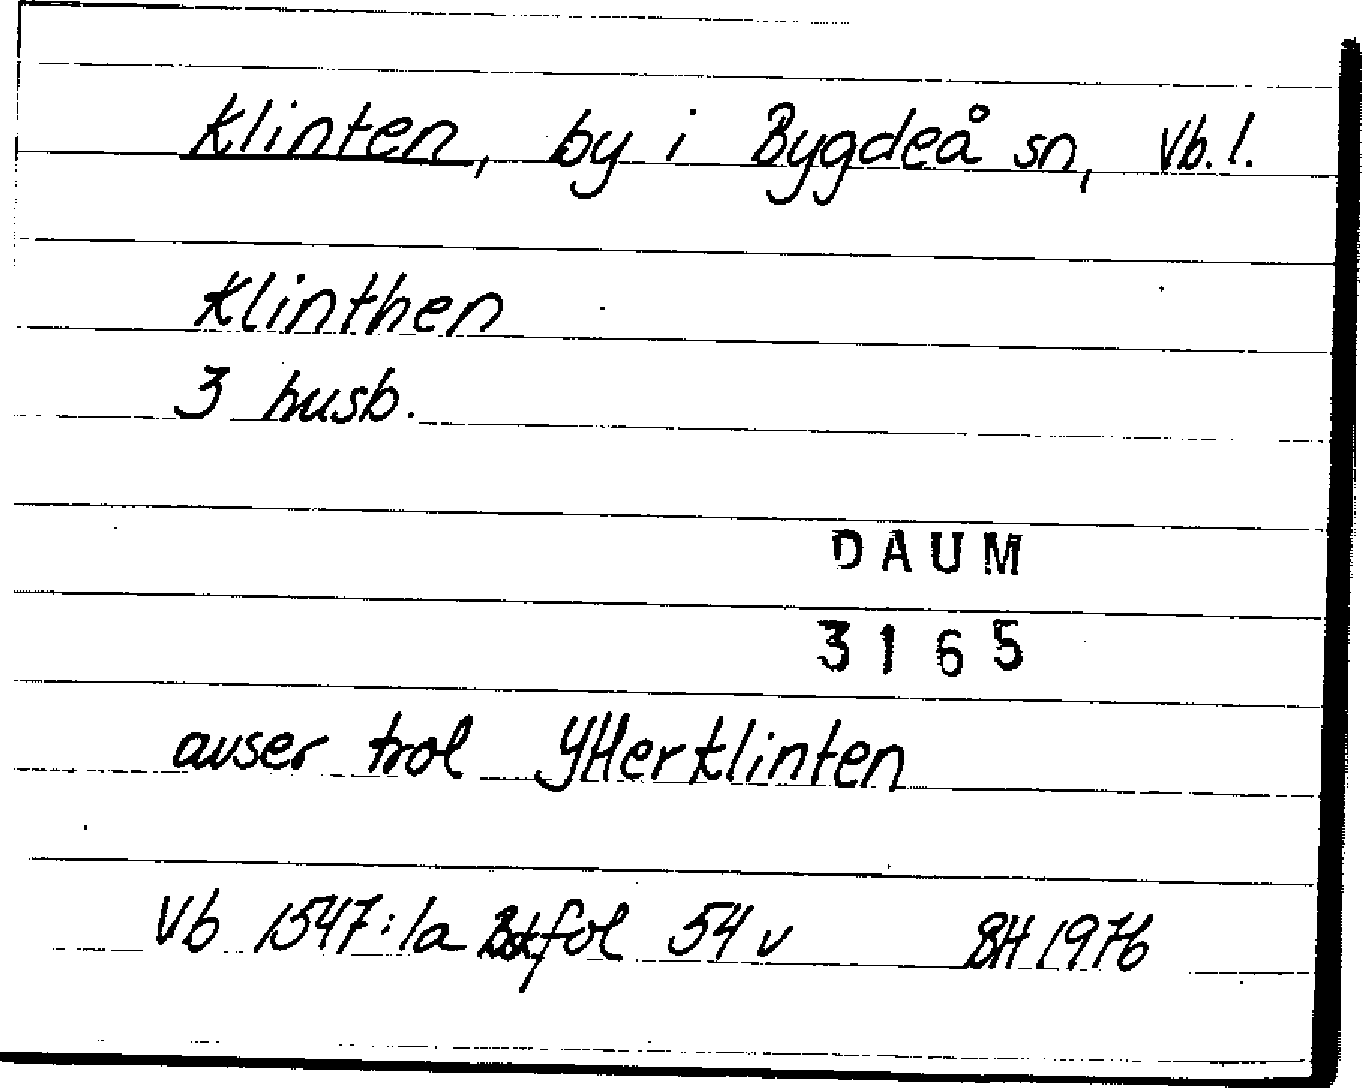 Klinten, by i Bygdeå sn, Vb. l.
Klinthen
3 husb.
DAUM
3165
avser trol Ytterklinten
Vb 1547:1a fol 54 v BH 1976